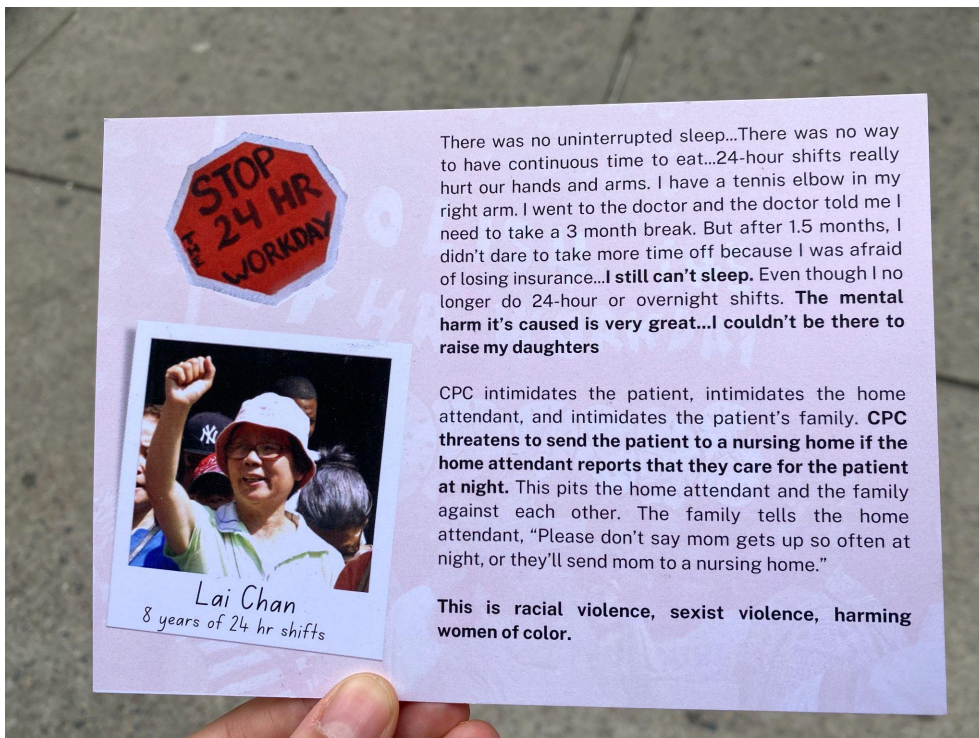 STOP
24 HR
THE
WORKDAY
Lai Chan
8 years of 24 hr shifts
There was no uninterrupted sleep...There was no way
to have continuous time to eat...24-hour shifts really
hurt our hands and arms. I have a tennis elbow in my
right arm. I went to the doctor and the doctor told me I
need to take a 3 month break. But after 1.5 months, I
didn't dare to take more time off because I was afraid
of losing insurance...I still can't sleep. Even though I no
longer do 24-hour or overnight shifts. The mental
harm it's caused is very great...I couldn't be there to
raise my daughters
CPC intimidates the patient, intimidates the home
attendant, and intimidates the patient's family. CPC
threatens to send the patient to a nursing home if the
home attendant reports that they care for the patient
at night. This pits the home attendant and the family
against each other. The family tells the home
attendant, “Please don't say mom gets up so often at
night, or they'll send mom to a nursing home.”
This is racial violence, sexist violence, harming
women of color.